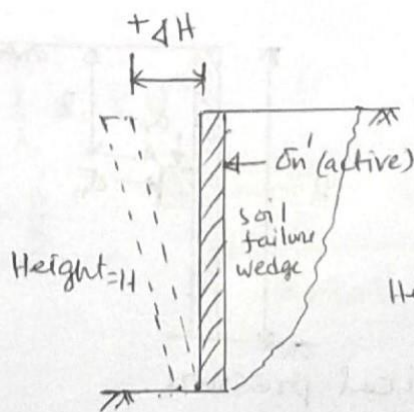 +ΔH
σn' (active)
soil
failure
wedge
Height=H
He